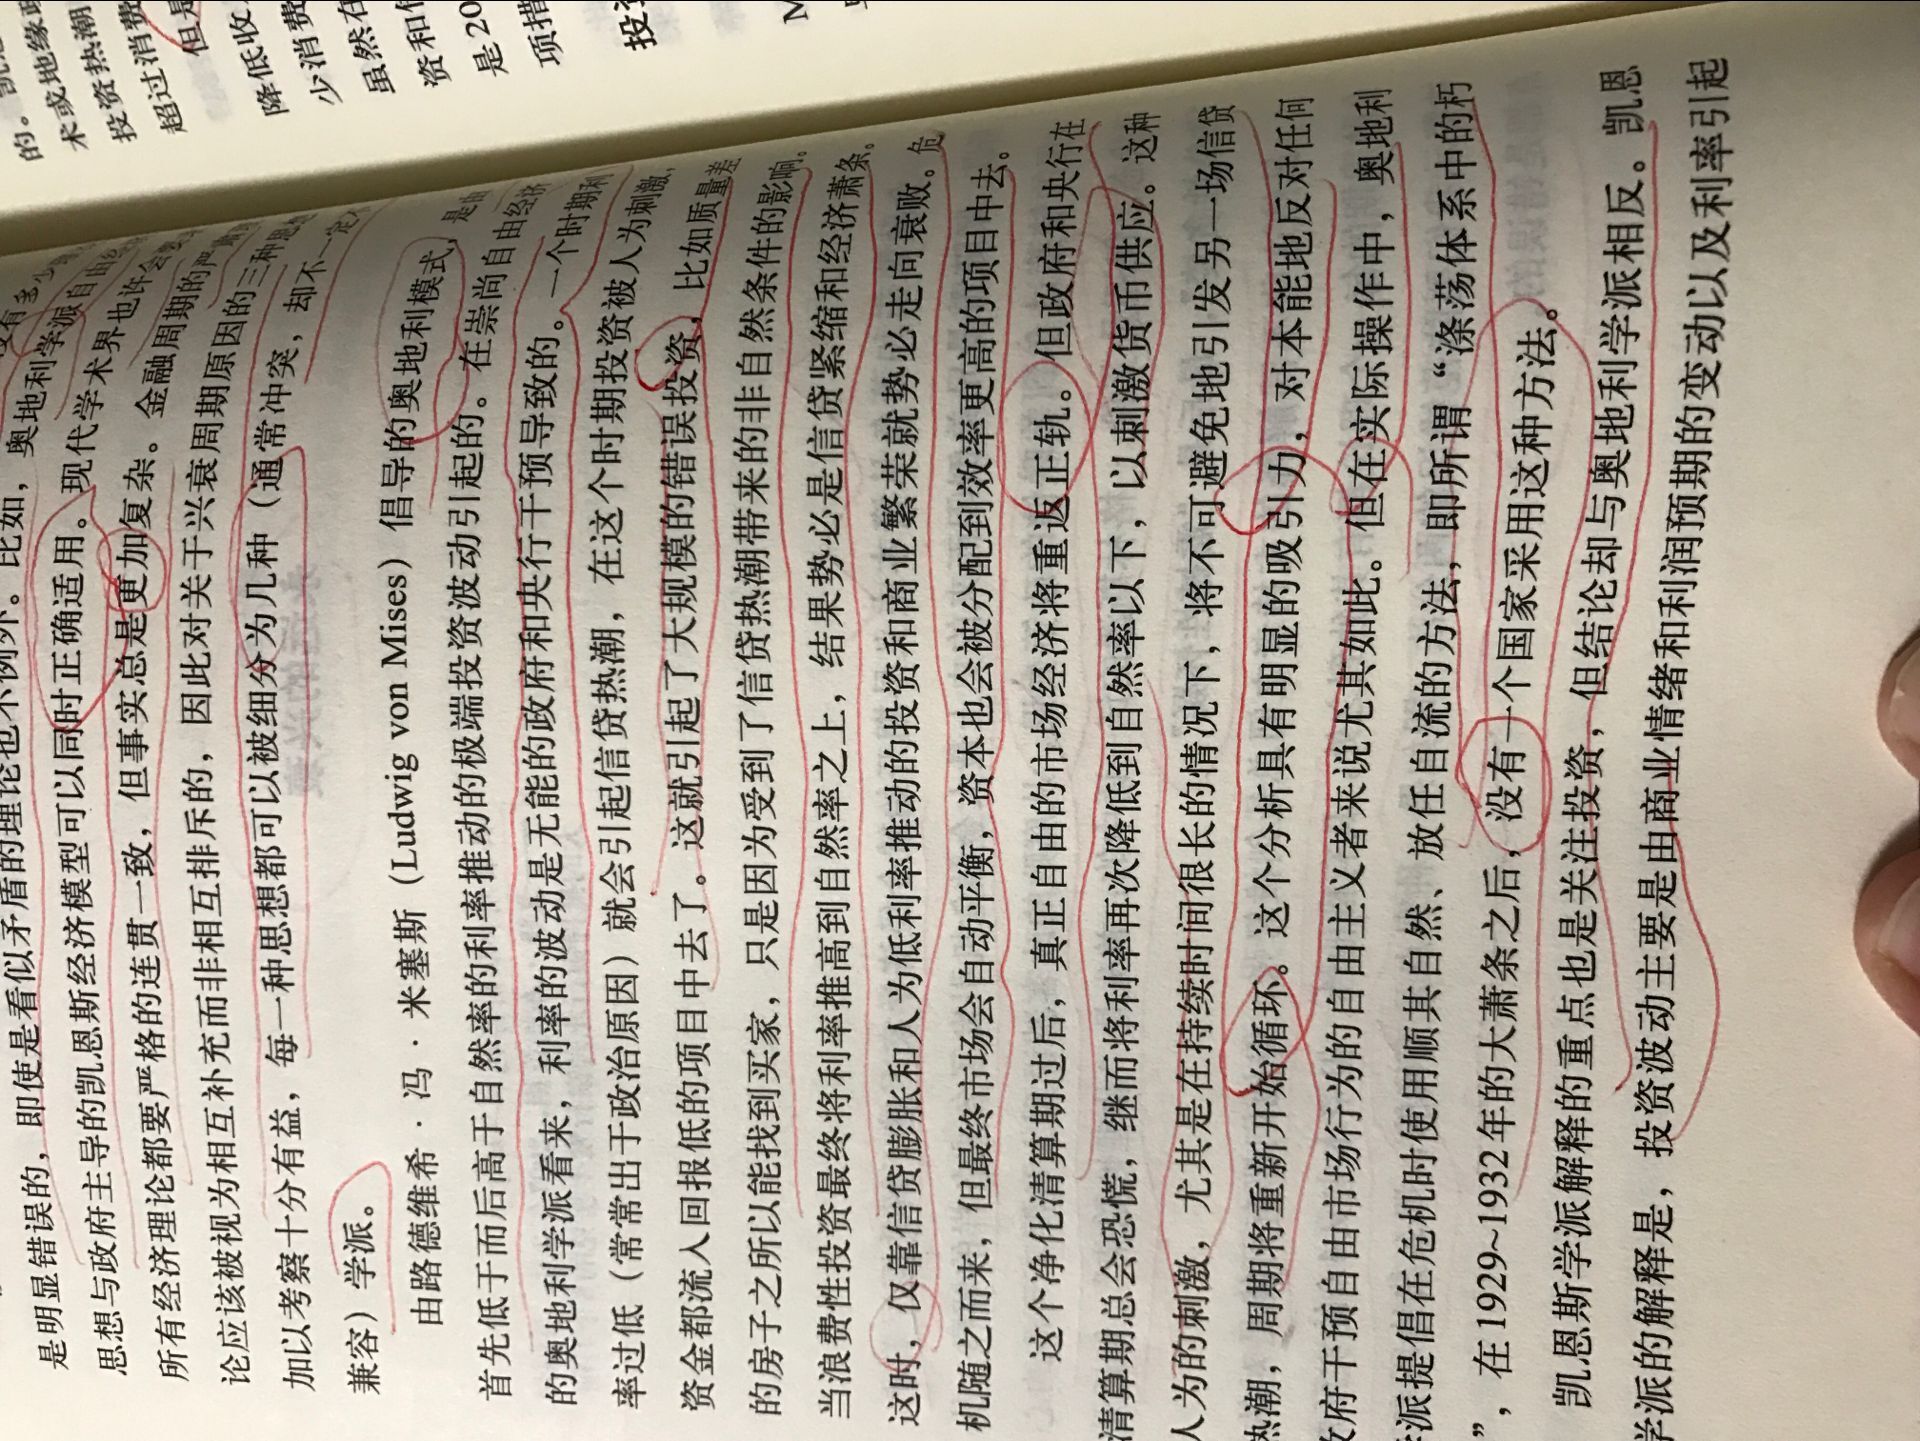 是明显错误的，即使是看似矛盾的理论也不例外。比如，奥地利学派自由
思想与政府主导的凯恩斯经济模型可以同时正确适用。现代学术界也许会
所有经济理论都要严格的连贯一致，但事实总是更加复杂。金融周期的严
论应该被视为相互补充而非相互排斥的，因此对关于兴衰周期原因的三种思
加以考察十分有益，每一种思想都可以被细分为几种（通常冲突，却不一定
兼容）学派。
由路德维希·冯·米塞斯（Ludwig von Mises）倡导的奥地利模式，是由
首先低于而后高于自然率的利率推动的极端投资波动引起的。在崇尚自由经济
的奥地利学派看来，利率的波动是无能的政府和央行干预导致的。一个时期利
率过低（常常出于政治原因）就会引起信贷热潮，在这个时期投资被人为刺激，
资金都流入回报低的项目中去了。这就引起了大规模的错误投资，比如质量差
的房子之所以能找到买家，只是因为受到了信贷热潮带来的非自然条件的影响。
当浪费性投资最终将利率推高到自然率之上，结果势必是信贷紧缩和经济萧条。
这时，仅靠信贷膨胀和人为低利率推动的投资和商业繁荣就势必走向衰败。危
机随之而来，但最终市场会自动平衡，资本也会被分配到效率更高的项目中去。
这个净化清算期过后，真正自由的市场经济将重返正轨。但政府和央行在
清算期总会恐慌，继而将利率再次降低到自然率以下，以刺激货币供应。这种
人为的刺激，尤其是在持续时间很长的情况下，将不可避免地引发另一场信贷
热潮，周期将重新开始循环。这个分析具有明显的吸引力，对本能地反对任何
政府干预自由市场行为的自由主义者来说尤其如此。但在实际操作中，奥地利
学派提倡在危机时使用顺其自然、放任自流的方法，即所谓“涤荡体系中的朽
”，在1929~1932年的大萧条之后，没有一个国家采用这种方法。
凯恩斯学派解释的重点也是关注投资，但结论却与奥地利学派相反。凯恩
学派的解释是，投资波动主要是由商业情绪和利润预期的变动以及利率引起
的。
术或地缘
投资热潮
超过消费
但是
降低收
少消费
虽然在
资和
是20
项措
投